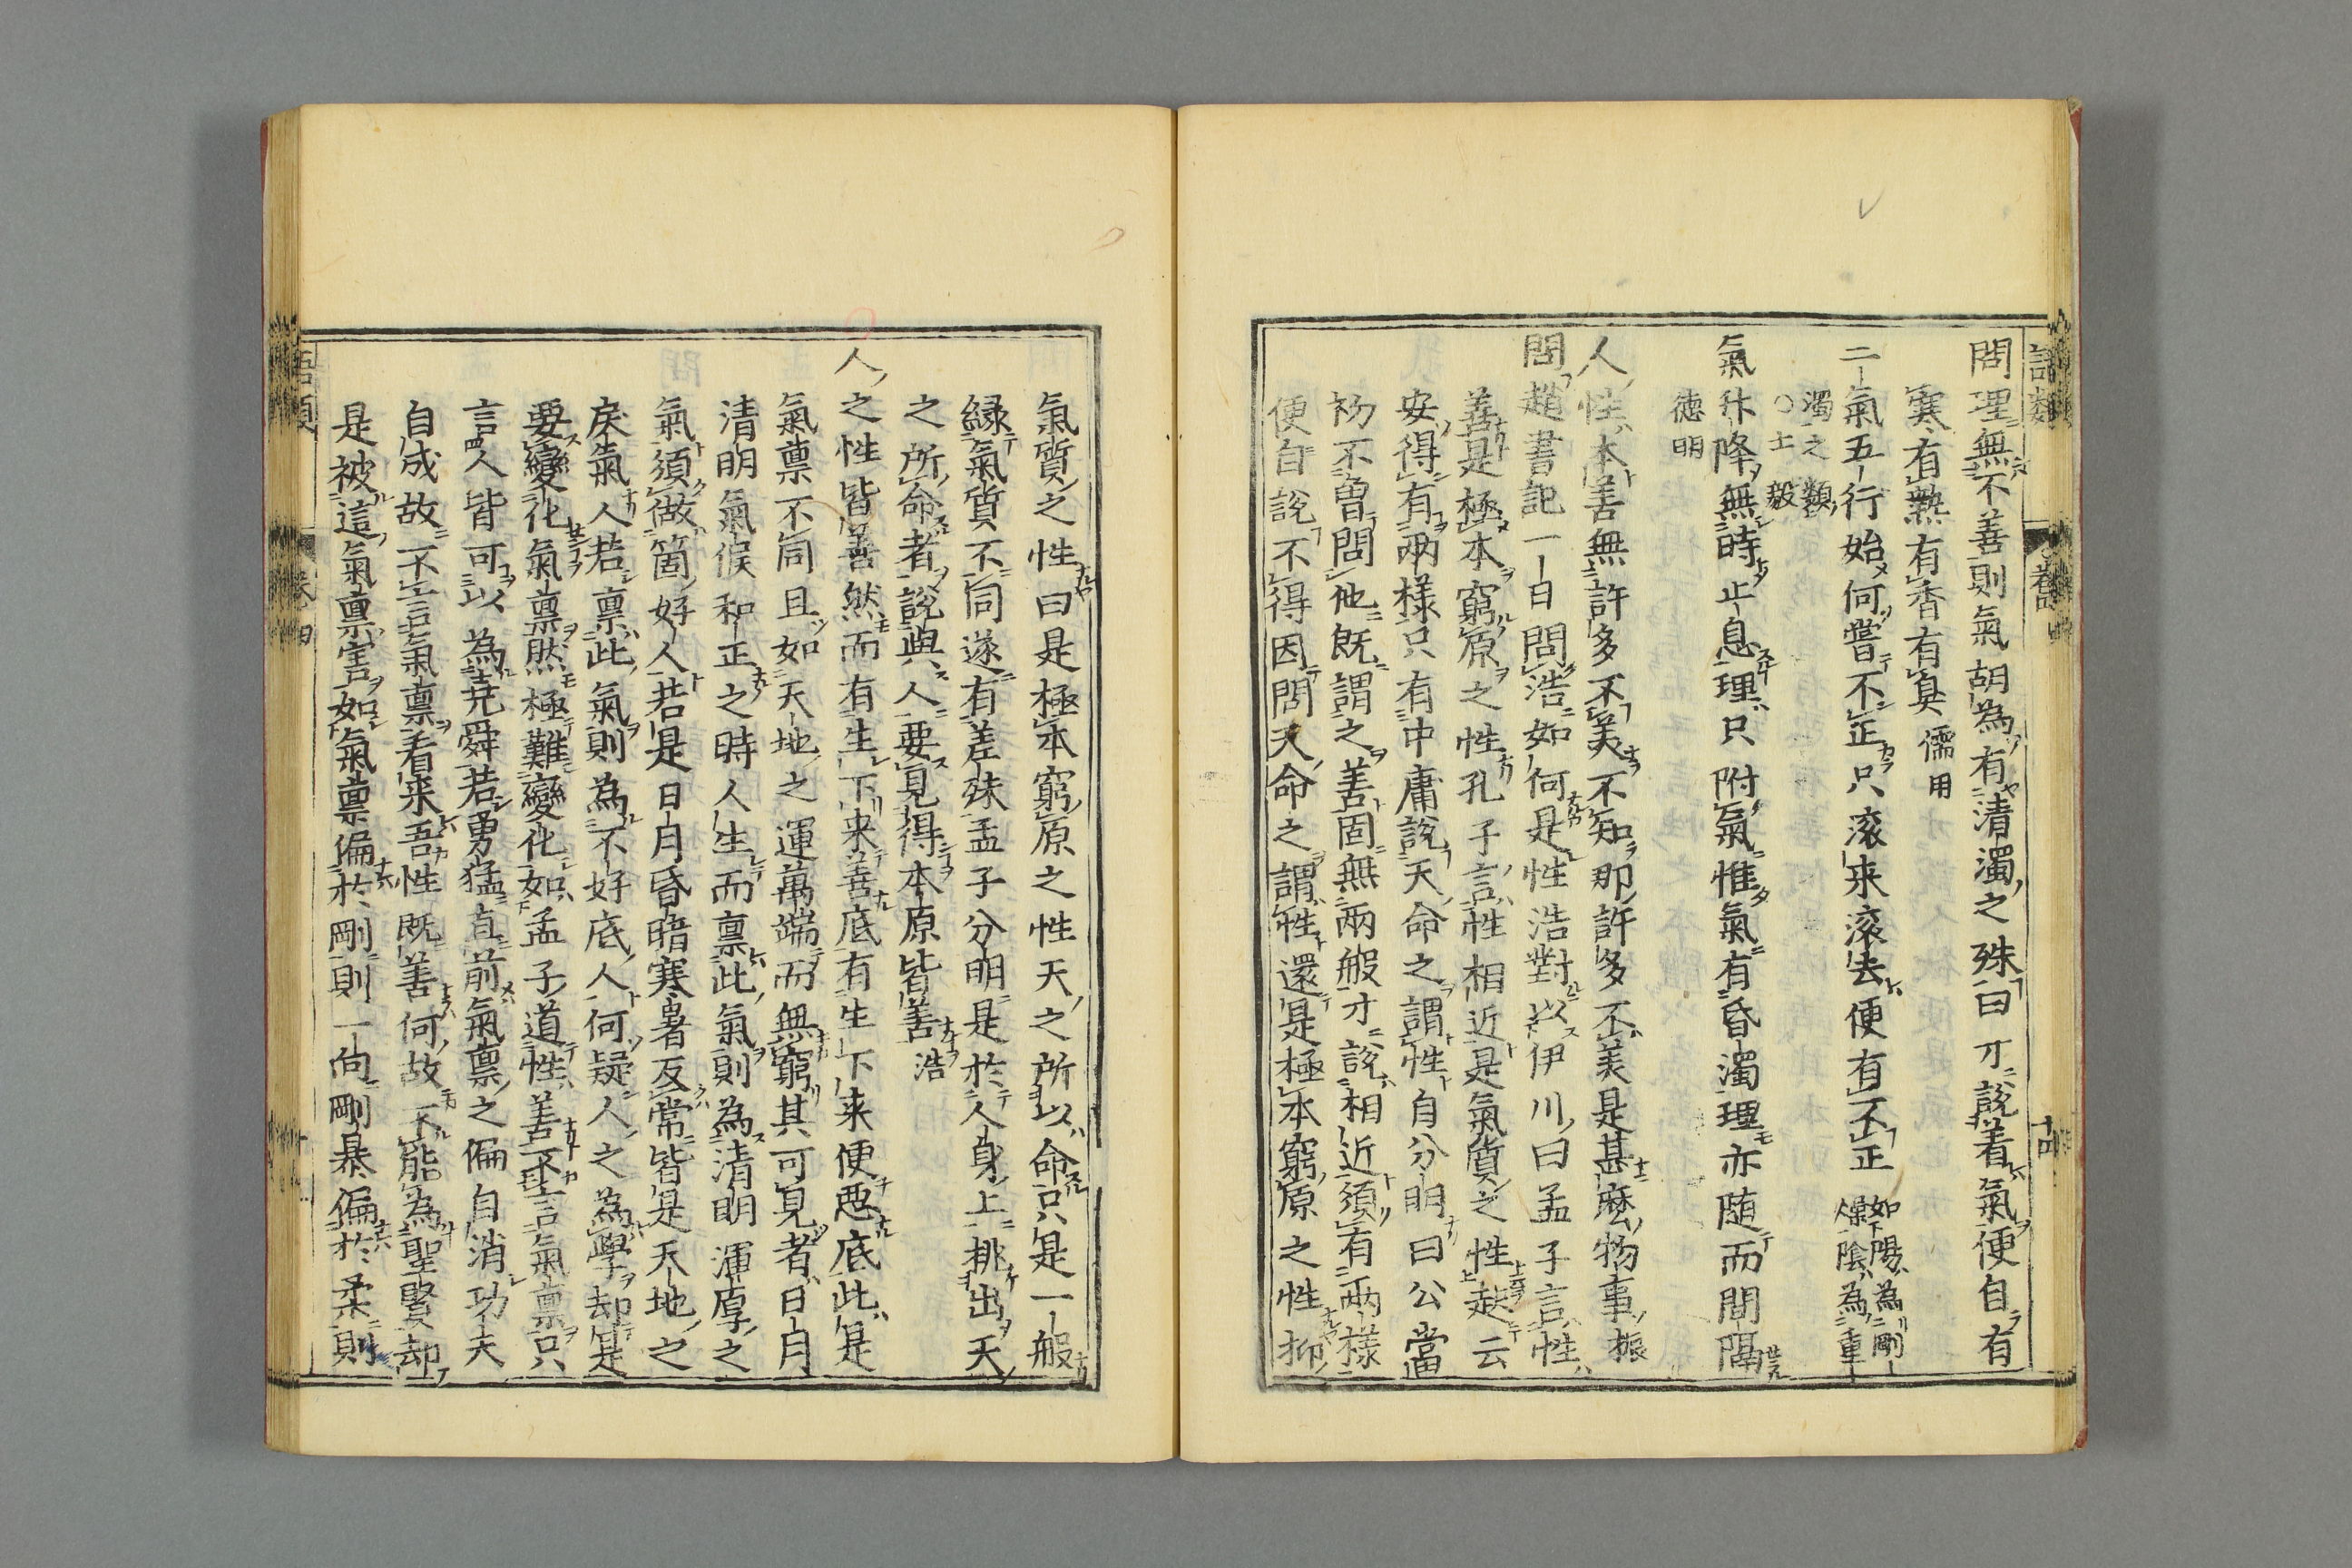 語類
卷四
十四
問理無不善則氣胡為有清濁之殊曰才說着氣便自有
寒有熱有香有臭儒用
二氣五行始何嘗不正只滚来滚去便有不正如陽為剛
燥陰為重
濁之類
○士毅
氣升降無時止息理只附氣惟氣有昏濁理亦随而間隔
德明
人性本善無許多不美不知那許多不美是甚麽物事振
問趙書記一日問浩如何是性浩對以伊川曰孟子言性
善是極本窮原之性孔子言性相近是氣質之性趙云
安得有兩樣只有中庸說天命之謂性自分明曰公當
初不曽問他既謂之善固無兩般才說相近須有兩樣
便自說不得因問天命之謂性還是極本窮原之性抑
氣質之性曰是極本窮原之性天之所以命只是一般
緣氣質不同遂有差殊孟子分明是於人身上挑出天
之所命者說與人要見得本原皆善浩
人之性皆善然而有生下来善底有生下来便惡底此是
氣禀不同且如天地之運萬端而無窮其可見者日月
清明氣候和正之時人生而禀此氣則為清明渾厚之
氣須做箇好人若是日月昏暗寒暑反常皆是天地之
戾氣人若禀此氣則為不好底人何疑人之為學却是
要變化氣禀然極難變化如孟子道性善不言氣禀只
言人皆可以為堯舜若勇猛直前氣禀之偏自消功夫
自成故不言氣禀看来吾性既善何故不能為聖賢却
是被這氣禀害如氣禀偏於剛則一向剛暴偏於柔則
語類
卷四